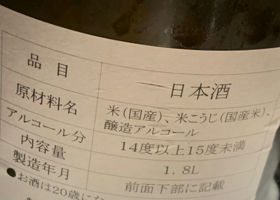 品目 日本酒
原材料名 米(国産)、米こうじ(国産米)、
醸造アルコール
アルコール分 14度以上15度未満
内容量 1.8L
製造年月 前面下部に記載
●お酒は20歳にな